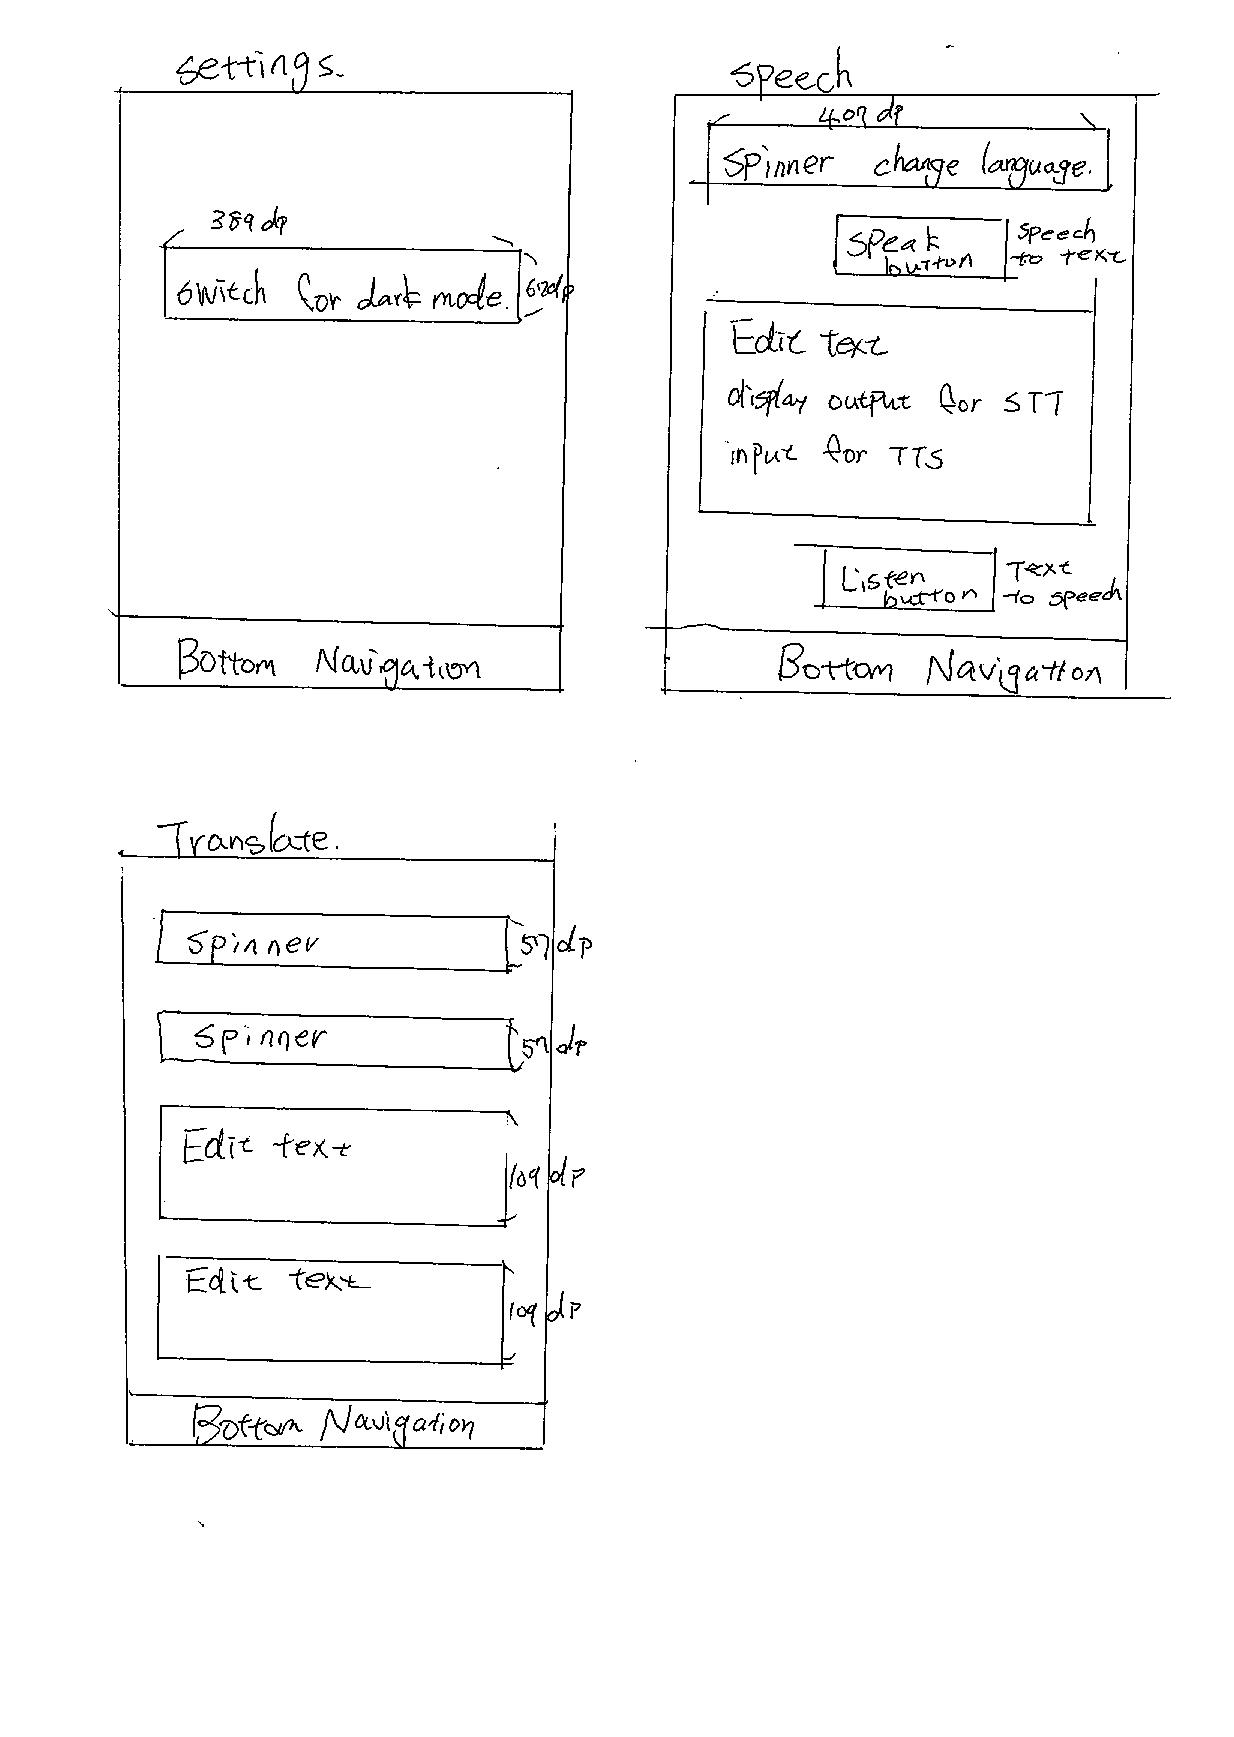 settings.
389 dp
switch for dark mode.
67dp
Bottom Navigation
speech
407 dp
Spinner change language.
Speak
button
speech
to text
Edit text
display output for STT
input for TTS
Listen
button
Text
to speech
Bottom Navigation
Translate.
Spinner
57 dp
Spinner
57 dp
Edit text
109 dp
Edit text
109 dp
Bottom Navigation